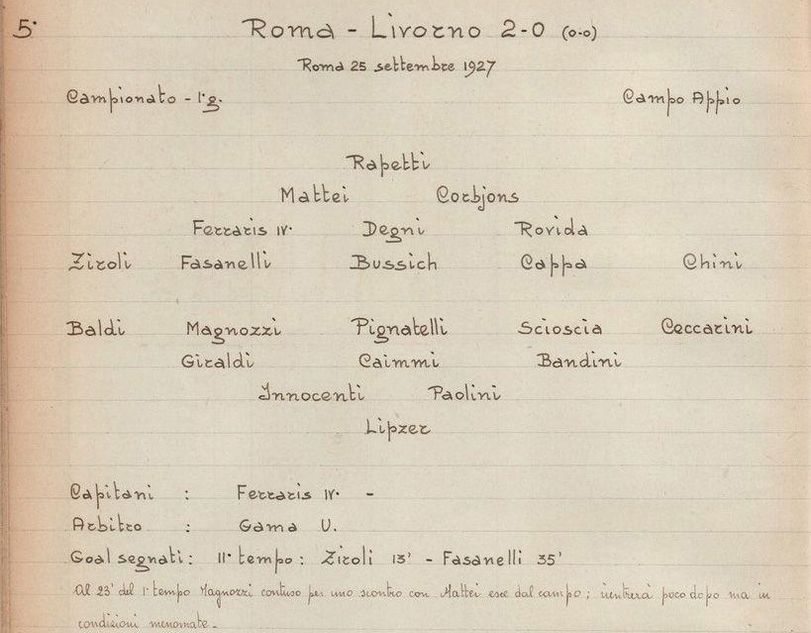 5°
Roma - Livorno 2-0 (0-0)
Roma 25 settembre 1927
Campionato - 1ª g. Campo Appio
Rapetti
Mattei Corbjons
Ferraris IV° Degni Rovida
Ziroli Fasanelli Bussich Cappa Chini
Baldi Magnozzi Pignatelli Scioscia Ceccarini
Giraldi Caimmi Bandini
Innocenti Paolini
Lipzer
Capitani : Ferraris IV° -
Arbitro : Gama U.
Goal segnati : II° tempo : Ziroli 13' - Fasanelli 35'
Al 23' del 1° tempo Magnozzi contuso per uno scontro con Mattei esce dal campo ; rientrerà poco dopo ma in
condizioni menomate -